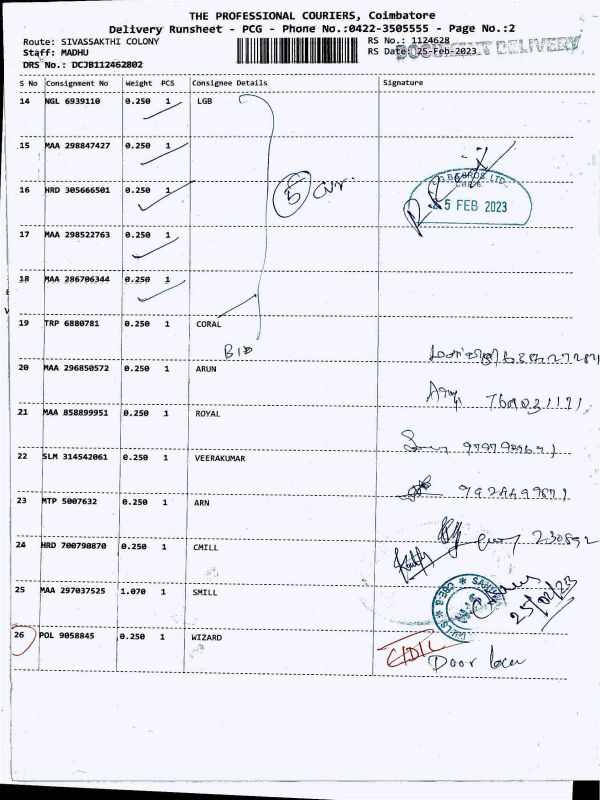 THE PROFESSIONAL COURIERS, Coimbatore
Delivery Runsheet - PCG - Phone No.:0422-3505555 - Page No.:2
Route: SIVASSAKTHI COLONY
Staff: MADHU
DRS No.: DCJB112462802
RS No.: 1124628
RS Date: 25-Feb-2023
DOCUMENT DELIVERY
S No Consignment No Weight PCS Consignee Details Signature
14 NGL 6939110 0.250 1 LGB
15 MAA 298847427 0.250 1
16 HRD 305666501 0.250 1
5
5 FEB 2023
17 MAA 298522763 0.250 1
18 MAA 286706344 0.250 1
19 TRP 6880781 0.250 1 CORAL
20 MAA 296850572 0.250 1 ARUN
21 MAA 858899951 0.250 1 ROYAL
22 SLM 314542061 0.250 1 VEERAKUMAR
23 MTP 5007632 0.250 1 ARN
24 HRD 700790870 0.250 1 CMILL
25 MAA 297037525 1.070 1 SMILL
25/02/23
26 POL 9058845 0.250 1 WIZARD
Door